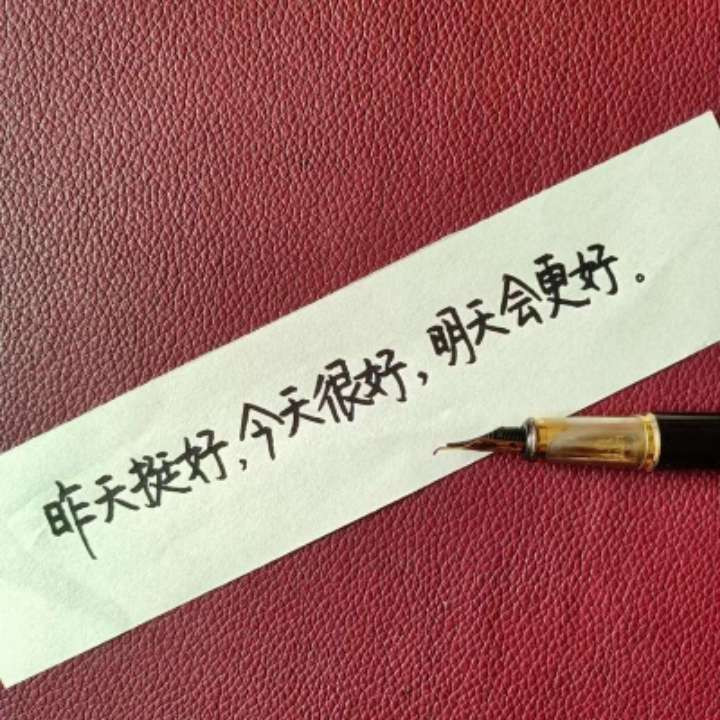 昨天挺好,今天很好,明天会更好。